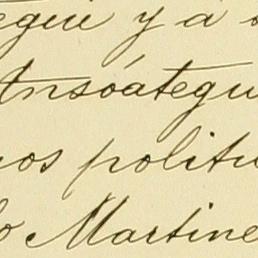 egui y á
Ansóategui
os politi
do Martine